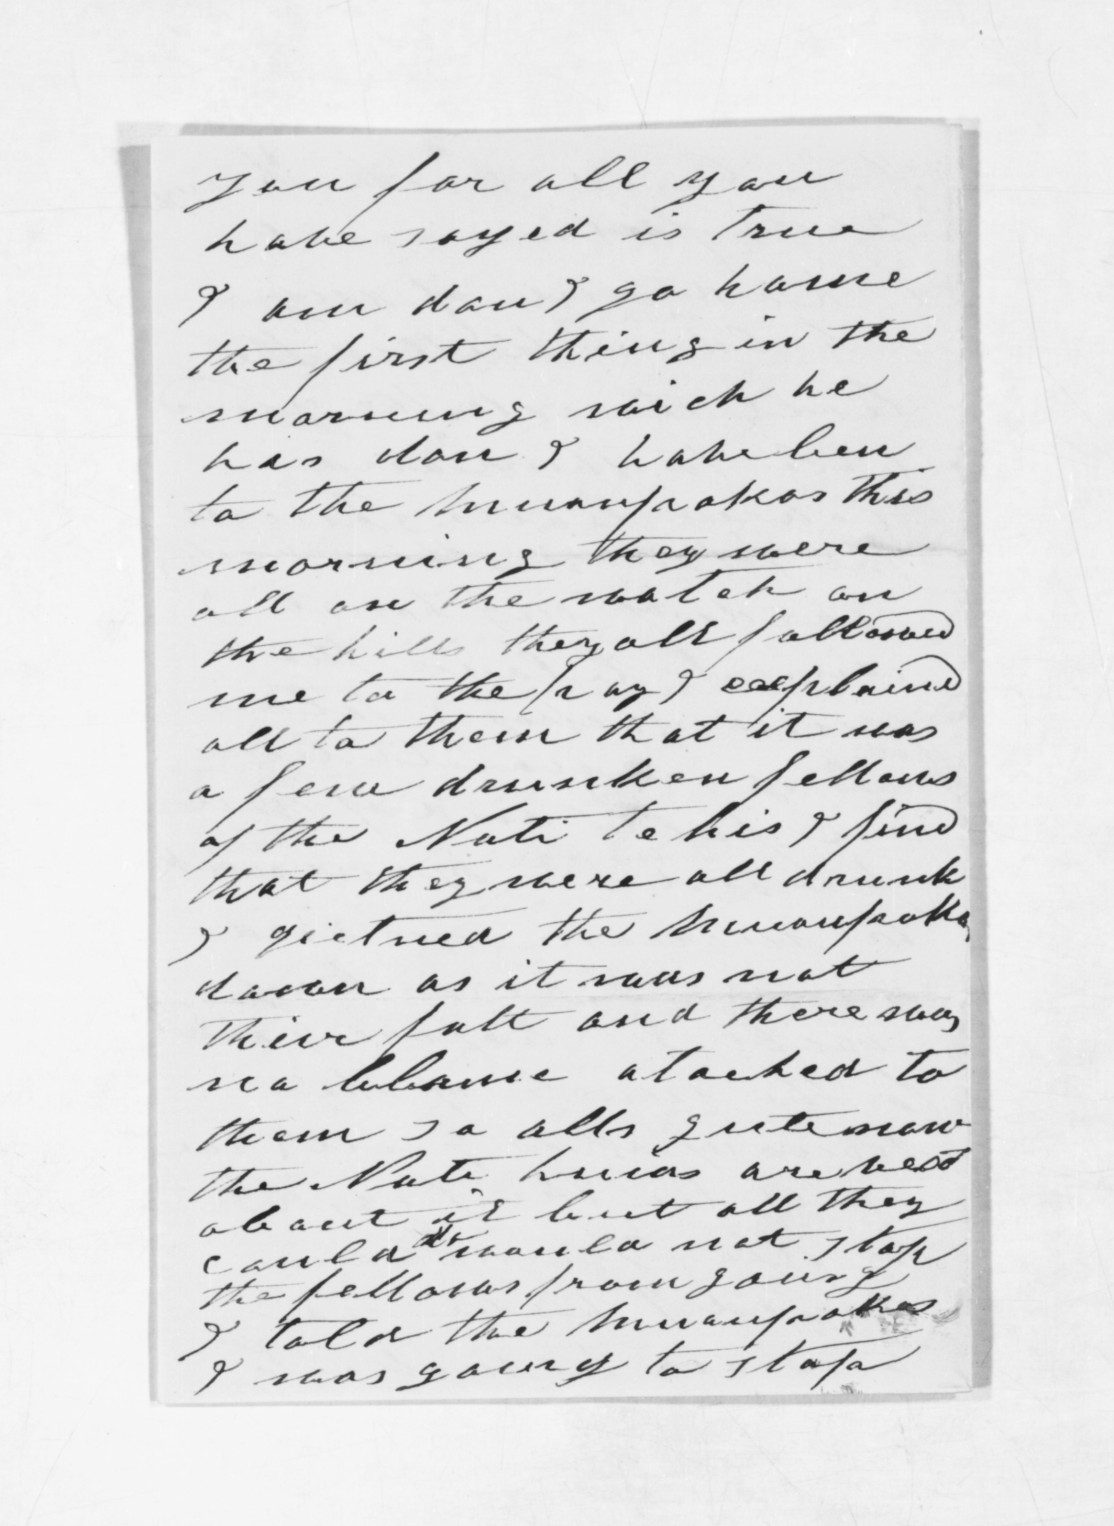 you for all you
have sayed is true
I am don I go home
the first thing in the
morning wich he
has don I have ben
to the hmaupokos this
morning they were
all on the watch on
the hills they all followed
me to the pay I explained
all to them that it was
a few drunken fellows
of the Nati te his I find
that they were all drunk
I qietned the hmaupokos
down as it was not
their falt and there was
no blame atached to
them so alls quite now
the Nati huias are vext
about it but all they
could do would not stop
the fellows from going
I told the hmaupokos
I was going to stop